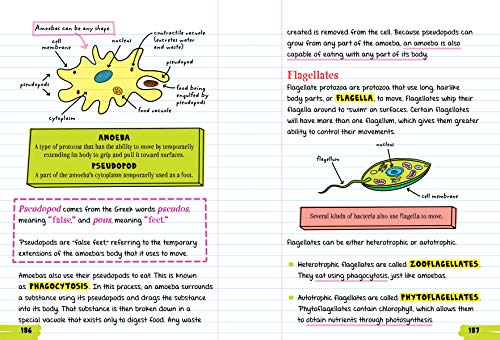 Amoebas can be any shape.
contractile vacuole
(excretes water
and waste)
nucleus
cell
membrane
pseudopod
pseudopods
food being
engulfed by
pseudopods
food vacuole
cytoplasm
AMOEBA
A type of protozoa that has the ability to move by temporarily
extending its body to grip and pull it toward surfaces.
PSEUDOPOD
A part of the amoeba's cytoplasm temporarily used as a foot.
Pseudopod comes from the Greek words pseudos,
meaning "false," and pous, meaning "feet."
Pseudopods are "false feet" referring to the temporary
extensions of the amoeba's body that it uses to move.
Amoebas also use their pseudopods to eat. This is known
as PHAGOCYTOSIS. In this process, an amoeba surrounds
a substance using its pseudopods and drags the substance
into its body. That substance is then broken down in a
special vacuole that exists only to digest food. Any waste
186
created is removed from the cell. Because pseudopods can
grow from any part of the amoeba, an amoeba is also
capable of eating with any part of its body.
Flagellates
Flagellate protozoa are protozoa that use long, hairlike
body parts, or FLAGELLA, to move. Flagellates whip their
flagella around to "swim" on surfaces. Certain flagellates
will have more than one flagellum, which gives them greater
ability to control their movements.
nucleus
flagellum
cell membrane
Several kinds of bacteria also use flagella to move.
Flagellates can be either heterotrophic or autotrophic.
Heterotrophic flagellates are called ZOOFLAGELLATES.
They eat using phagocytosis, just like amoebas.
Autotrophic flagellates are called PHYTOFLAGELLATES.
Phytoflagellates contain chlorophyll, which allows them
to obtain nutrients through photosynthesis.
187